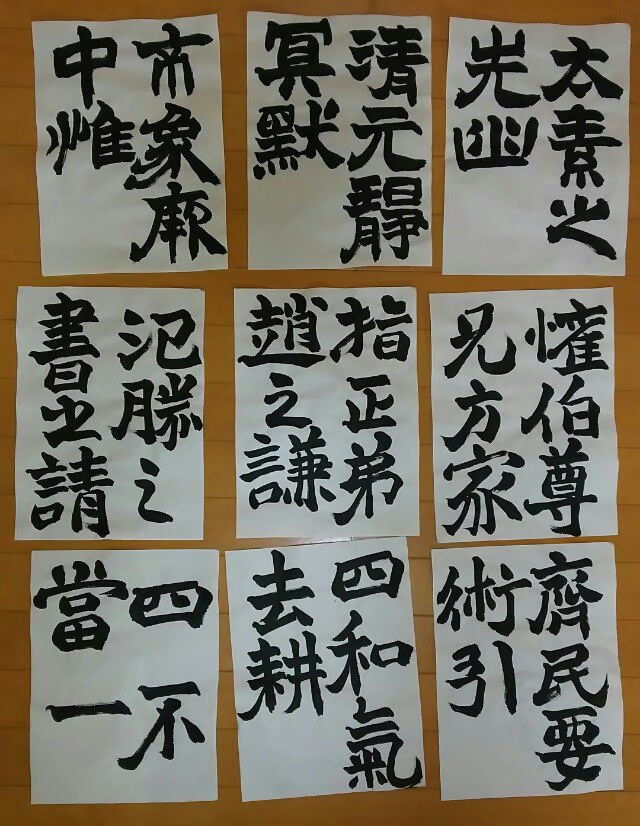 太素之
先幽
清元靜
冥默
象厥
中惟
懽伯尊
兄方家
指正弟
趙之謙
氾勝之
書之請
齊民要
術引
四和氣
去耕
四不
當一